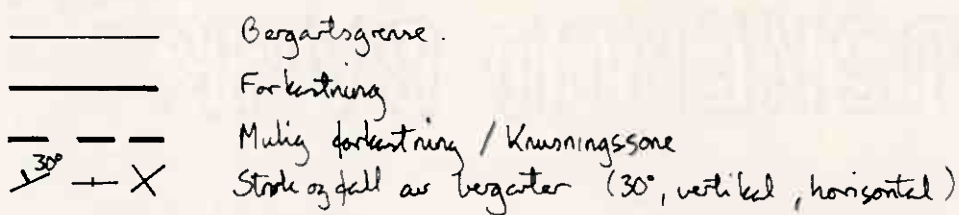 Bergartsgrense.
Forkastning
Mulig forkastning / Knusningssone
30° Strøk og fall av bergarter (30°, vertikal, horisontal)